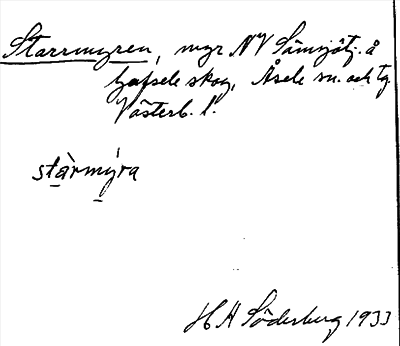 Starrmyren, myr NV Sämsjötj. å
Gafsele skog, Åsele sn. och tg
Västerb. l.
stàrmýra
H A Söderberg 1933